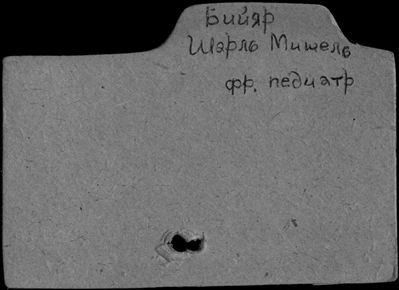 Бийяр
Шарль Мишель
фр. педиатр